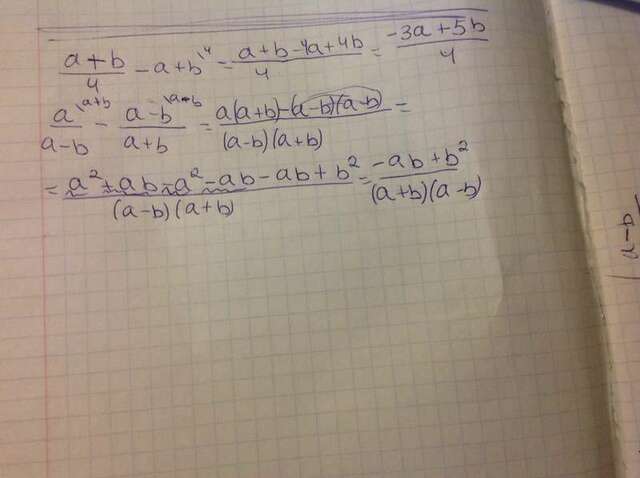 (a+b)/4 - a+b \4 = (a+b-4a+4b)/4 = (-3a+5b)/4
a \a+b/(a-b) - (a-b) \a-b/(a+b) = (a(a+b)-(a-b)(a-b))/((a-b)(a+b)) =
= (a²+ab-a²-ab-ab+b²)/((a-b)(a+b)) = (-ab+b²)/((a+b)(a-b))